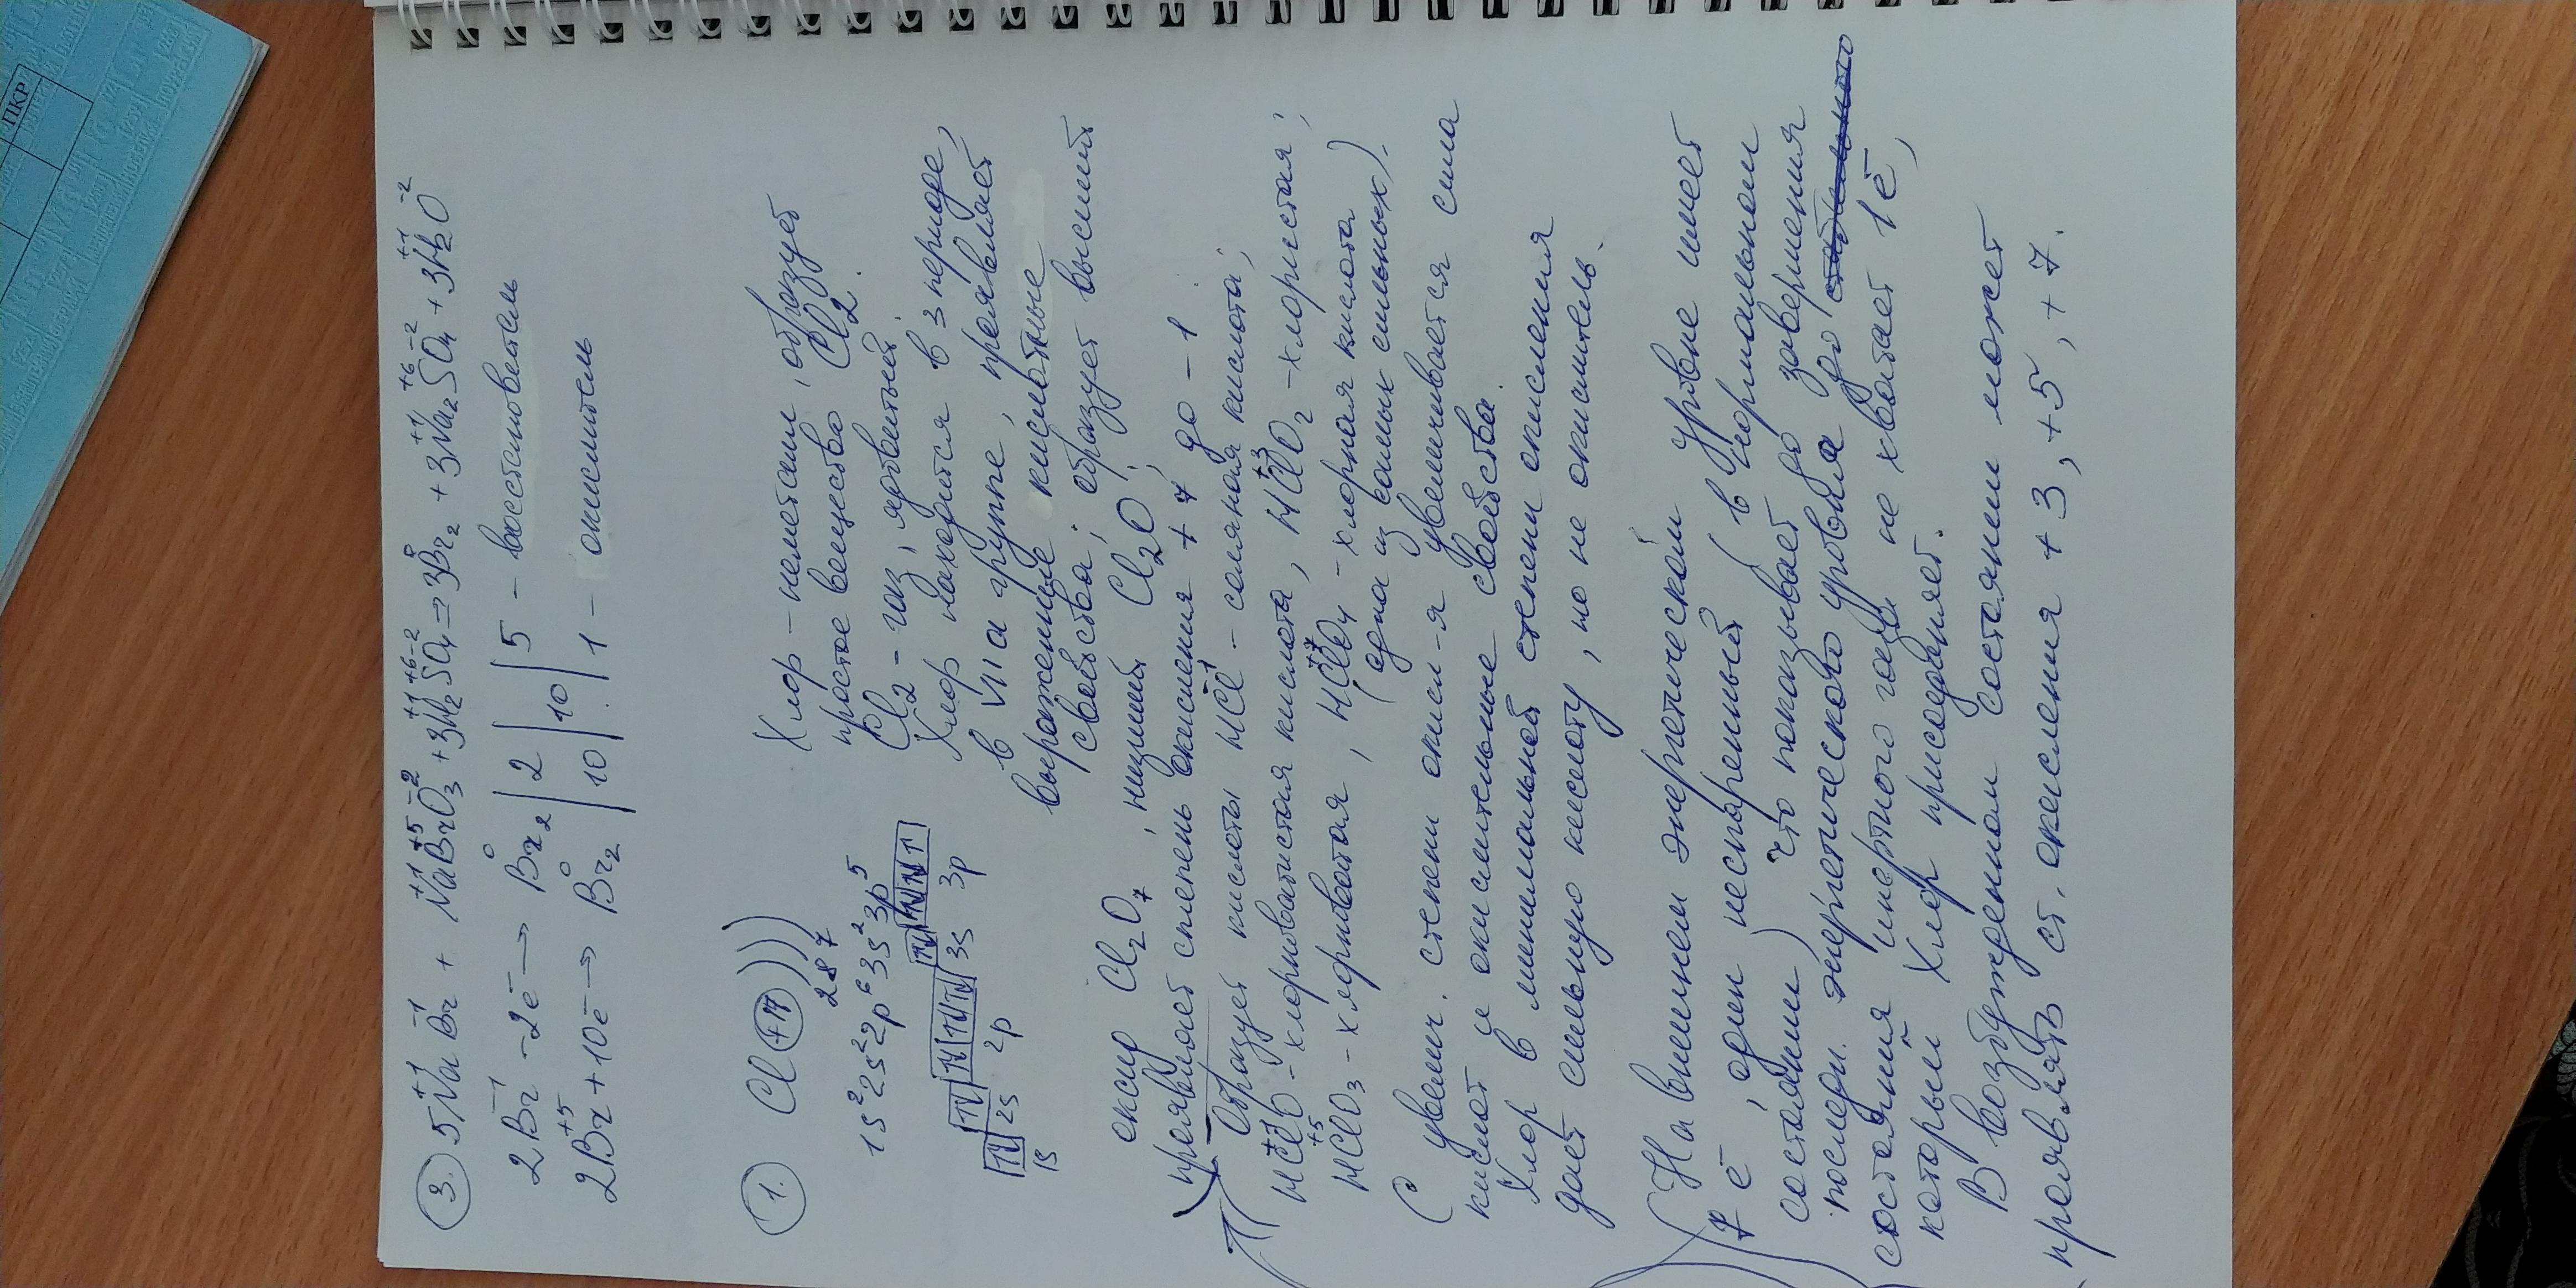 3. 5Na⁺¹Br⁻¹ + Na⁺¹Br⁺⁵O₃⁻² + 3H₂⁺¹S⁺⁶O₄⁻² = 3Br₂⁰ + 3Na₂⁺¹S⁺⁶O₄⁻² + 3H₂⁺¹O⁻²
2Br⁻¹ -2ē → Br₂⁰ | 2 | 10 | 5 - восстановитель
2Br⁺⁵ +10ē → Br₂⁰ | 10 | | 1 - окислитель
1. Cl +17 ) ) )
2 8 7
1s²2s²2p⁶3s²3p⁵
1s 2s 2p 3s 3p
Хлор - неметалл, образует
простое вещество Cl₂.
Cl₂ - газ, ядовитый.
Хлор находится в 3 периоде,
в VII а группе, проявляет
выраженные кислотные
свойства; образует высший
оксид Cl₂O₇, низший Cl₂O;
проявляет степень окисления +7 до -1
Образует кислоты HCl⁻¹ - соляная кислота;
HCl⁺¹O - хлорноватистая кислота, HCl⁺³O₂ - хлористая;
HCl⁺⁵O₃ - хлорноватая, HCl⁺⁷O₄ - хлорная кислота
(одна из самых сильных).
С увелич. степени окисл-я увеличивается сила
кислот и окислительные свойства.
Хлор в минимальной степени окисления
дает сильную кислоту, но не окислитель.
На внешнем энергетическом уровне имеет
7ē, один неспаренный (в нормальном
состоянии) что показывает до завершения
последн. энергетического уровня до
состояния инертного газа не хватает 1ē,
который Хлор присоединяет.
В возбужденном состоянии может
проявлять ст. окисления +3, +5, +7.
ПКР